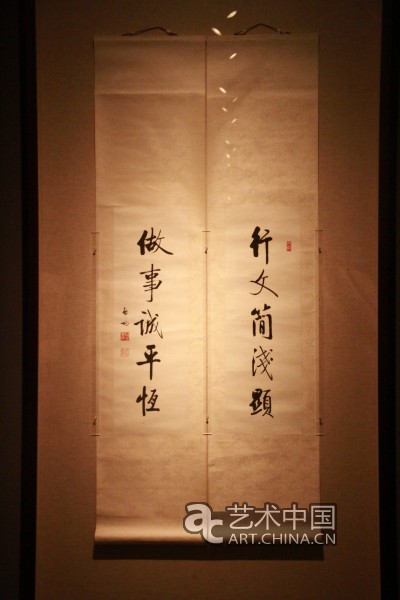 行文简浅顯
做事诚平恆
启功
艺术中国
ART.CHINA.CN